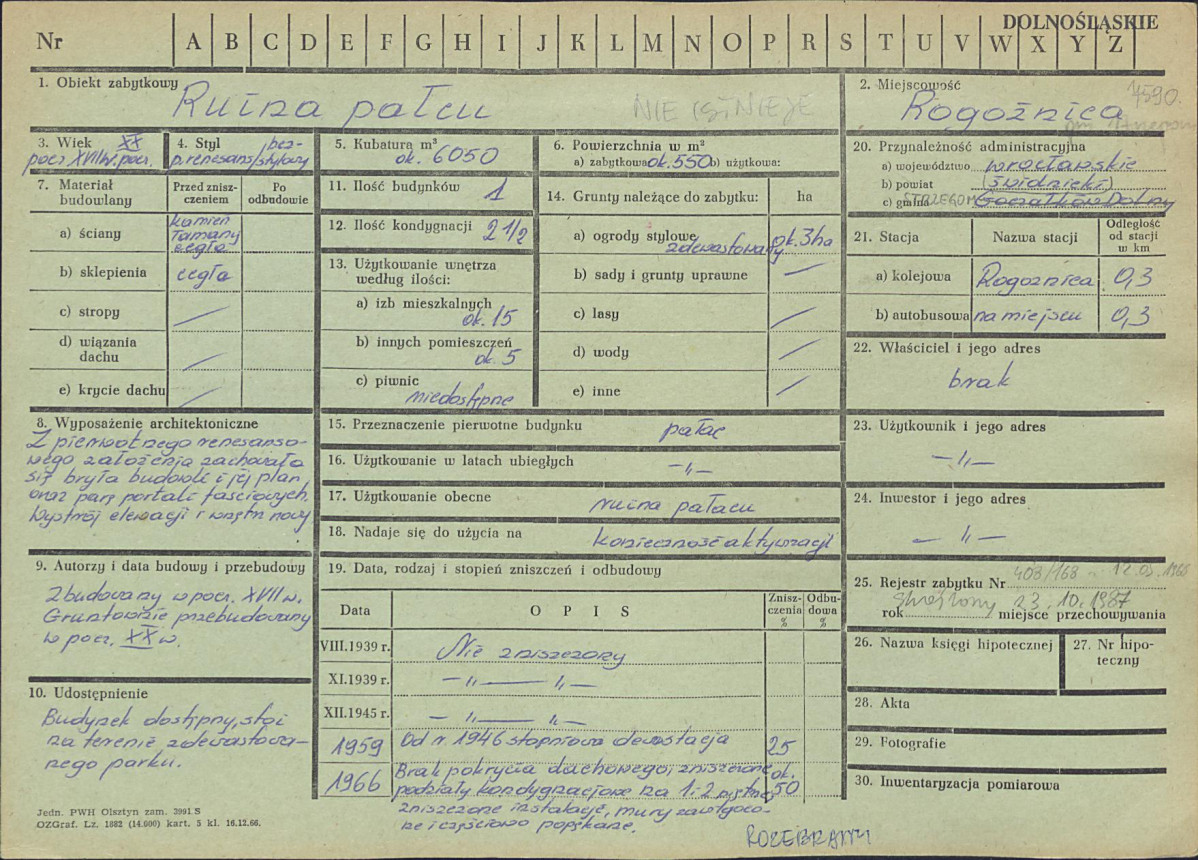 DOLNOŚLĄSKIE
Nr A B C D E F G H I J K L M N O P R S T U V W X Y Z
1. Obiekt zabytkowy
Ruina pałacu
NIE ISTNIEJE
2. Miejscowość
4590.
Rogoźnica
3. Wiek XX
pocz. XVII w. pocz.
4. Styl bez-
p. renesans/stylowy
5. Kubatura m³
ok. 6050
6. Powierzchnia w m²
a) zabytkowa ok. 550 b) użytkowa:
20. Przynależność administracyjna
a) województwo wrocławskie
b) powiat (świdnicki)
c) gmina STRZEGOM Goczałków Dolny
7. Materiał budowlany
Przed znisz-
czeniem
Po
odbudowie
a) ściany
kamień
łamany
cegła
b) sklepienia cegła
c) stropy —
d) wiązania
dachu —
e) krycie dachu —
11. Ilość budynków 1
12. Ilość kondygnacji 2 1/2
13. Użytkowanie wnętrza
według ilości:
a) izb mieszkalnych
ok. 15
b) innych pomieszczeń
ok. 5
c) piwnic
niedostępne
14. Grunty należące do zabytku: ha
a) ogrody stylowe
zdewastowany ok. 3 ha
b) sady i grunty uprawne —
c) lasy —
d) wody —
e) inne —
21. Stacja Nazwa stacji
Odległość
od stacji
w km
a) kolejowa Rogoźnica 0,3
b) autobusowa na miejscu 0,3
22. Właściciel i jego adres
brak
8. Wyposażenie architektoniczne
Z pierwotnego renesanso-
wego założenia zachowała
się bryła budowli i jej plan
oraz parę portali fasciowych.
Wystrój elewacji i wnętrz nowy
15. Przeznaczenie pierwotne budynku pałac
16. Użytkowanie w latach ubiegłych —„—
17. Użytkowanie obecne ruina pałacu
18. Nadaje się do użycia na konieczność aktywizacji
23. Użytkownik i jego adres
—„—
24. Inwestor i jego adres
—„—
9. Autorzy i data budowy i przebudowy
Zbudowany w pocz. XVII w.
Gruntownie przebudowany
w pocz. XX w.
10. Udostępnienie
Budynek dostępny, stoi
na terenie zdewastowa-
nego parku.
19. Data, rodzaj i stopień zniszczeń i odbudowy
Data OPIS
Znisz-
czenia
%
Odbu-
dowa
%
VIII.1939 r. Nie zniszczony
XI.1939 r. —„— „—
XII.1945 r. —„— „—
1959 Od r. 1946 stopniowa dewastacja 25
1966 Brak pokrycia dachowego, zniszczone ok.
podziały kondygnacjowe na 1-2 piętrze, 50
zniszczone instalacje, mury zawilgoco-
ne i częściowo popękane.
25. Rejestr zabytku Nr 408/168 12.03.1966
skreślony 23.10.1987
rok miejsce przechowywania
26. Nazwa księgi hipotecznej
27. Nr hipo-
teczny
28. Akta
29. Fotografie
30. Inwentaryzacja pomiarowa
ROZEBRANY
Jedn. PWH Olsztyn zam. 3991 S
OZGraf. Lz. 1882 (14.000) kart. 5 kl. 16.12.66.